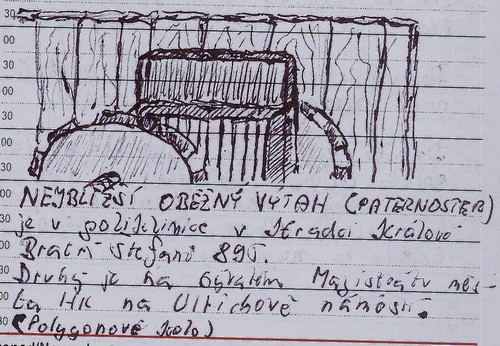 30
00
30
00
30
00
30
00
30
00
30
NEJBLIŽŠÍ OBĚŽNÝ VÝTAH (PATERNOSTER)
je v poliklinice v Hradci Králové
Bratří Štefanů 895.
Druhý je na bývalém Magistrátu měs-
ta HK na Ulrichově náměstí.
(Polygonové kolo)